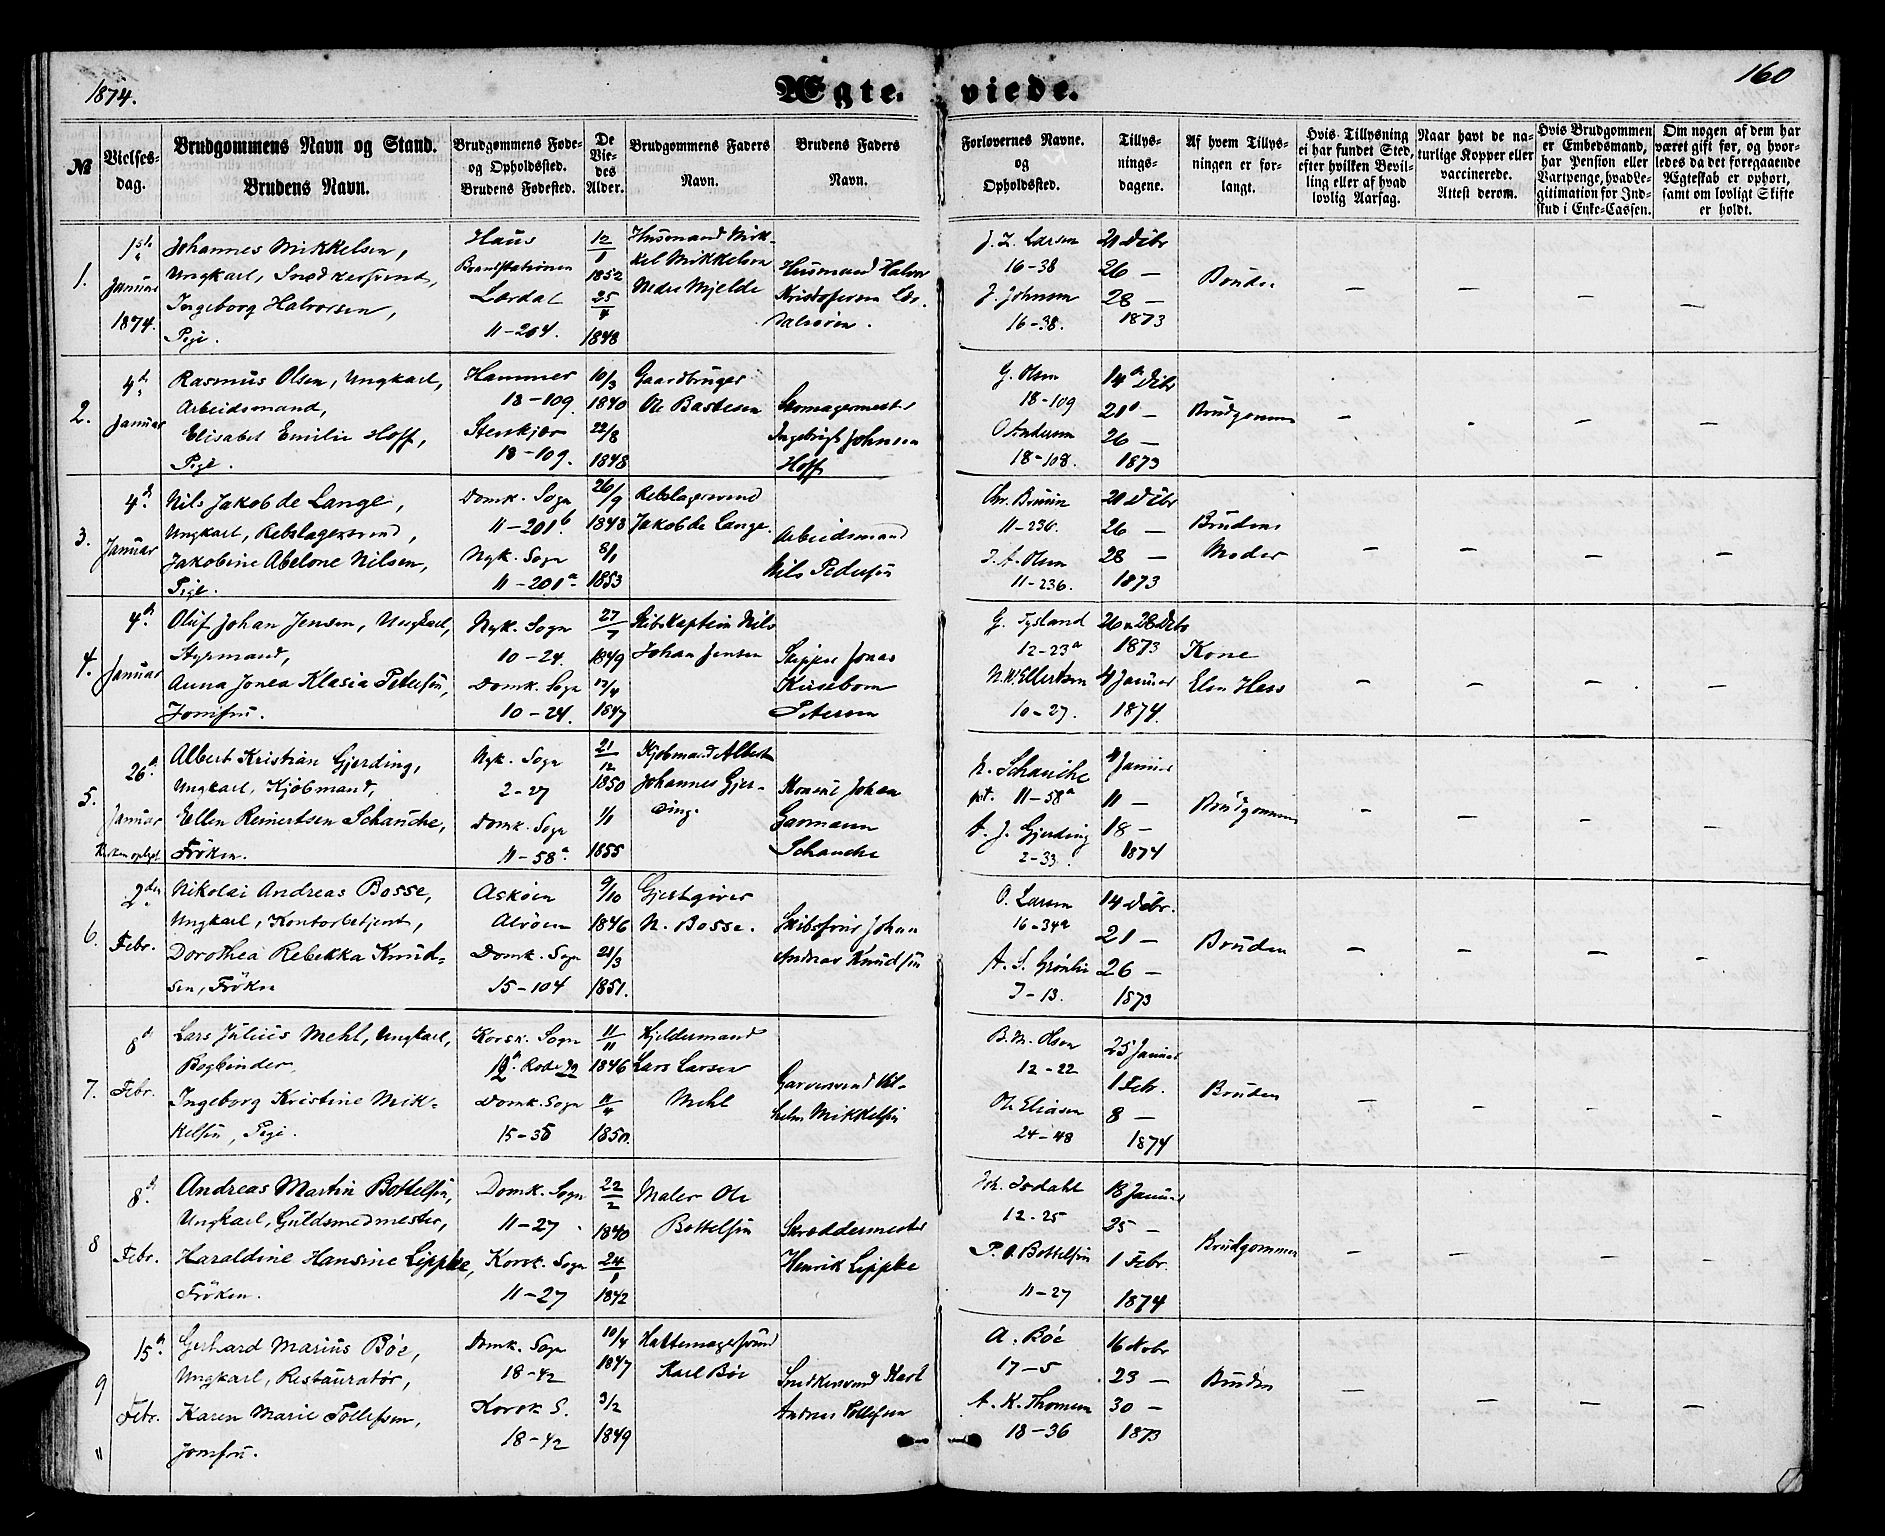 1874.
Ægte-
viede.
160
№
Vielses-
dag.
Brudgommens Navn og Stand.
Brudens Navn.
Brudgommens Føde-
og Opholdssted.
Brudens Fødested.
De
Vie-
des
Alder.
Brudgommens Faders
Navn.
Brudens Faders
Navn.
Forlovernes Navne.
og
Opholdssted.
Tillys-
nings-
dagene.
Af hvem Tillys-
ningen er for-
langt.
Hvis Tillysning
ei har fundet Sted,
efter hvilken Bevil-
ling eller af hvad
lovlig Aarsag.
Naar havt de na-
turlige Kopper eller
vaccinerede.
Attest derom.
Hvis Brudgommen
er Embedsmand,
har Pension eller
Vartpenge, hvad Le-
gitimation for Ind-
skud i Enke-Cassen.
Om nogen af dem har
været gift før, og hvor-
ledes da det foregaaende
Ægteskab er ophørt,
samt om lovligt Skifte
er holdt.
1.
1ste
Januar
1874.
Johannes Mikkelsen,
Ungkarl, Snedkersvend,
Ingeborg Halvorsen,
Pige.
Haus
Brandstationen
Lærdal
11-204.
12/1
1852
25/4
1848
Husmand Mik-
kel Mikkelsen
Nedre Mjelde
Husmand Halvor
Kristofersen Lær-
dalsøren.
J. L. Larsen
16-38
J. Johnsen
16-38.
21 Dcbr
26 —
28 —
1873
Bruden
2.
4de
Januar
Rasmus Olsen, Ungkarl,
Arbeidsmand,
Elisabet Emilie Hoff,
Pige.
Hammer
18-109.
Stenkjær
18-109.
10/3
1840
22/8
1848
Gaardbruger
Ole Bastesen
Skomagermester
Ingebrigt Johnsen
Hoff
G. Olsen
18-109
O Andersen
18-108.
14de Dcbr
21de —
26 —
1873
Brudgommen
3.
4de
Januar
Nils Jakob de Lange,
Ungkarl, Rebslagersvend,
Jakobine Abelone Nilsen,
Pige.
Domk. Sogn
11-201b
Nyk. Sogn
11-201a
26/9
1848
8/1
1853
Rebslagersvend
Jakob de Lange.
Arbeidsmand
Nils Pedersen
Chr. Bruun
11-236.
J. A. Olsen
11-236.
21 Dcbr
26 —
28 —
1873
Brudens
Moder
4.
4de
Januar
Oluf Johan Jensen, Ungkarl,
Styrmand,
Anna Jonea Klasia Petersen,
Jomfru.
Nyk. Sogn
10-24.
Domk. Sogn
10-24.
27/7
1849
17/4
1847
Skibskaptein Nils
Johan Jensen
Skipper Jonas
Kirsebom
Petersen
G. Tysland
12-23a
N. W. Ellertsen
10-27.
26 n 28 Dcbr
1873
4 Januar
1874.
Kone
Elen Hess
5.
26de
Januar
Kirken oplyst
Albert Kristian Gjerding,
Ungkarl, Kjøbmand,
Ellen Reinertsen Schanche,
Frøken.
Nyk. Sogn
2-27
Domk. Sogn
11-58a.
21/12
1850
1/1
1855
Kjøbmand Albert
Johannes Gjer-
ding.
Konsul Johan
Garmann
Schanche
N. Schanche
11-58a
A. J. Gjerding
2-33.
4 Januar
11 —
18 —
1874
Brudgommen
6.
2den
Febr.
Nikolai Andreas Bosse,
Ungkarl, Kontorbetjent,
Dorothea Rebekka Knud-
sen, Frøken
Askøen
Alvøen
Domk. Sogn
15-104
9/10
1846
21/3
1851.
Gjestgiver
N. Bosse.
Skibsfører Johan
Andreas Knudsen
O. Larsen
16-34a
A. S. Grønlie
7-13.
14 Dcbr.
21 —
26 —
1873
Bruden
7.
8de
Febr.
Lars Julius Mehl, Ungkarl,
Bogbinder,
Ingeborg Kristine Mik-
kelsen, Pige.
Korsk. Sogn
12te Rode 22
Domk. Sogn
15-35
11/11
1846
11/4
1850.
Kjeldermand
Lars Larsen
Mehl
Garversvend Vil-
helm Mikkelsen
B. M. Olsen
12-22
Ole Eliasen
24-48
25 Januar
1 Febr.
8 —
1874
Bruden
8
8de
Febr.
Andreas Martin Bottelsen,
Ungkarl, Guldsmedmester,
Haraldine Hansine Lippke,
Frøken.
Domk. Sogn
11-27.
Korsk. Sogn
11-27
22/2
1840
24/1
1842
Maler Ole
Bottelsen
Skræddermester
Henrik Lippke
Joh. Isdahl
12-25
P. A. Bottelsen
11-27
18 Januar
25 —
1 Febr.
1874
Brudgommen
9
15de
Febr.
"
Gerhard Marius Bøe,
Ungkarl, Restauratør,
Karen Marie Tollefsen,
Jomfru.
Domk. Sogn
18-42
Korsk. S.
18-42
10/4
1847
3/2
1849
Hattemagersvend
Karl Bøe
Snedkersvend Karl
Andreas Tollefsen
A. Bøe
17-5
A. K. Thomsen
18-36
16 Novbr
23 —
30 —
1873
Bruden